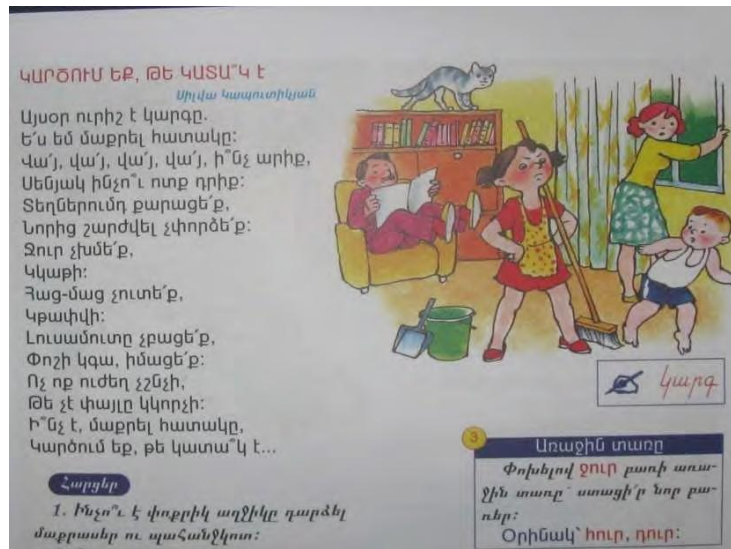 ԿԱՐԾՈՒՄ ԵՔ, ԹԵ ԿԱՏԱ՞Կ Է
Սիլվա Կապուտիկյան
Այսօր ուրիշ է կարգը.
Ե՛ս եմ մաքրել հատակը:
Վա՜յ, վա՜յ, վա՜յ, վա՜յ, ի՞նչ արիք,
Սենյակ ինչո՞ւ ոտք դրիք:
Տեղներումդ քարացե՛ք,
Նորից շարժվել չփորձե՛ք:
Ջուր չխմե՛ք,
Կկաթի:
Հաց-մաց չուտե՛ք,
Կթափվի:
Լուսամուտը չբացե՛ք,
Փոշի կգա, իմացե՛ք:
Ոչ ոք ուժեղ չշնչի,
Թե չէ փայլը կկորչի:
Ի՞նչ է, մաքրել հատակը,
Կարծում եք, թե կատա՞կ է...
Հարցեր
1. Ինչո՞ւ է փոքրիկ աղջիկը դարձել
մաքրասեր ու պահանջկոտ:
կարգ
3
Առաջին տառը
Փոխելով ջուր բառի առա-
ջին տառը՝ ստացի՛ր նոր բա-
ռեր:
Օրինակ՝ հուր, դուր: